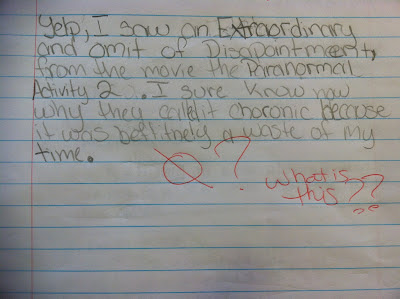 Yelp, I saw an Extraordinary
and omit of Disapointment,
from the movie the Paranormal
Activity 2 . I sure know now
why they call it choronic because
it was befitinely a waste of my
time.
?
What is
this??